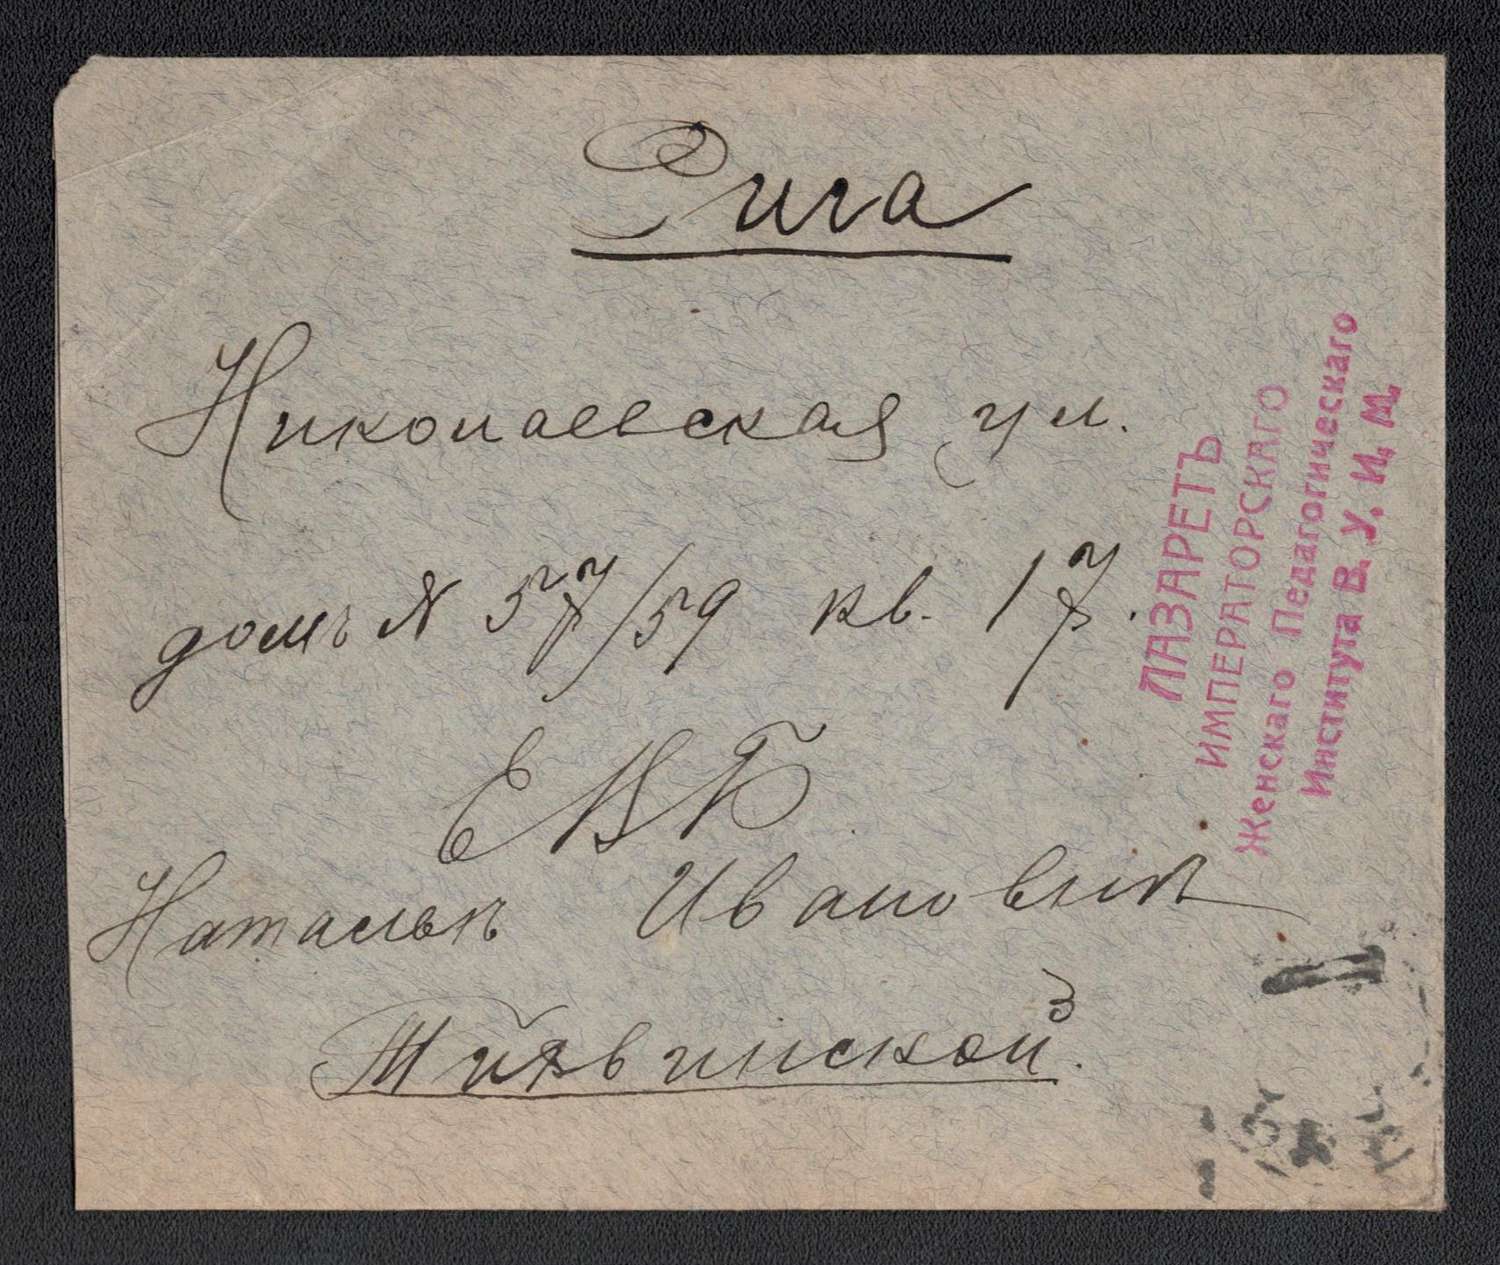 Рига
Николаевская ул.
домъ № 57/59 кв. 17.
ЕВБ
Наталіи Ивановнѣ
ЛАЗАРЕТЪ
ИМПЕРАТОРСКАГО
Женскаго Педагогическаго
Института В. У. И. М.